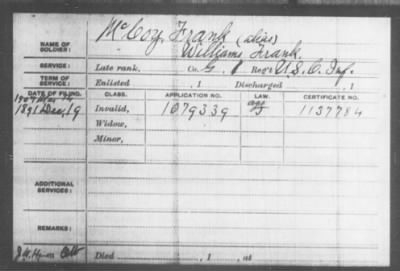 McCoy, Frank (alias)
NAME OF SOLDIER: Williams Frank.
SERVICE: Late rank, Co. G, 1 Reg't U.S.C. Inf.
TERM OF SERVICE: Enlisted , 1 Discharged , 1
DATE OF FILING. CLASS. APPLICATION NO. LAW. CERTIFICATE NO.
1907
1891 Dec, 19 Invalid, 1079339 1137784
Widow,
Minor,
ADDITIONAL SERVICES:
REMARKS:
Died , 1 , at